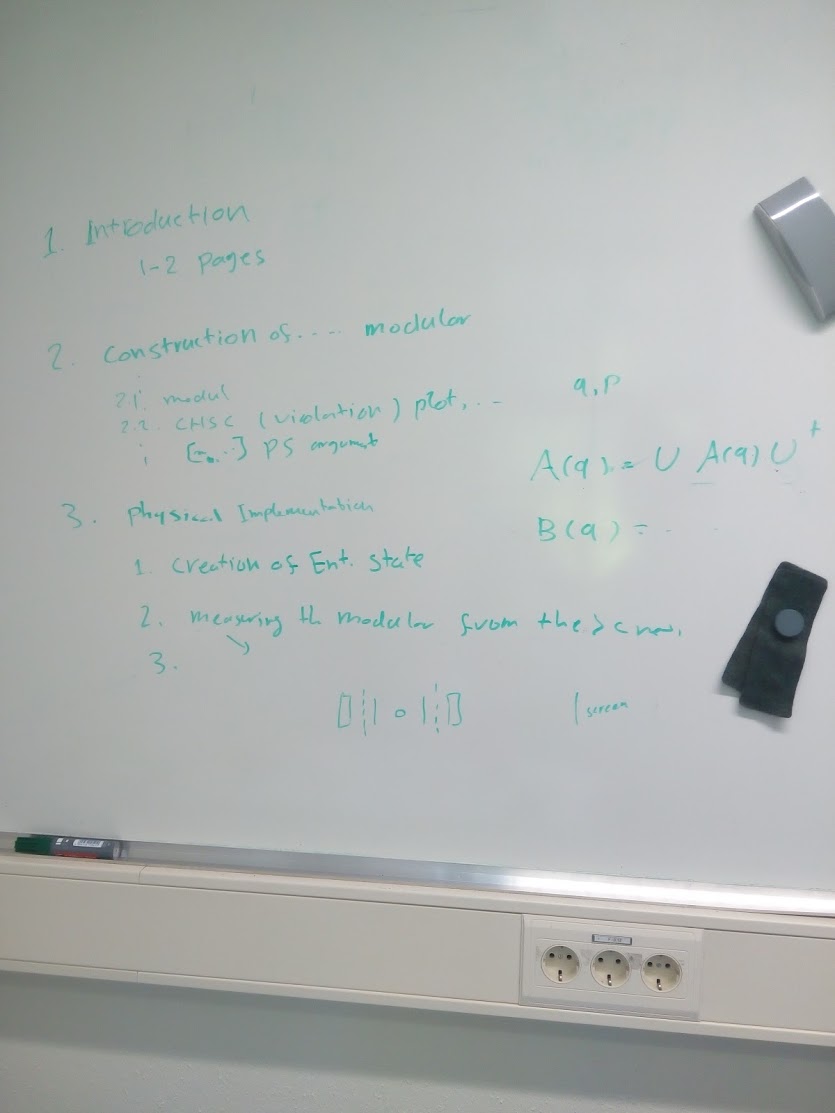 1. Introduction
1-2 pages
2. Construction of.... modular
2.1. modul
2.2. CHSC (violation) plot, ...
PS argument
3. Physical Implementation
1. Creation of Ent. state
2. measuring th modular from the
3.
| screen
q, p
A(q) = U A(q) U†
B(q) = ...